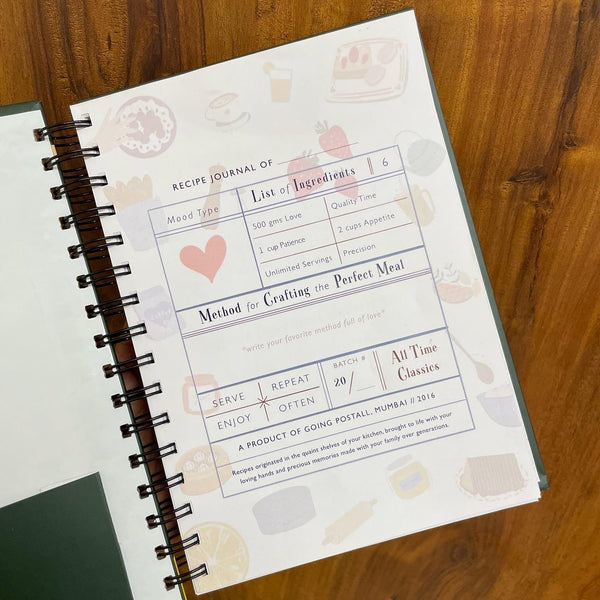 RECIPE JOURNAL OF
Mood Type
List of Ingredients
6
500 gms Love
Quality Time
1 cup Patience
2 cups Appetite
Unlimited Servings
Precision
Method for Crafting the Perfect Meal
"write your favorite method full of love"
SERVE
REPEAT
ENJOY
OFTEN
BATCH #
20/
All Time
Classics
A PRODUCT OF GOING POSTALL, MUMBAI // 2016
Recipes originated in the quaint shelves of your kitchen, brought to life with your
loving hands and precious memories made with your family over generations.